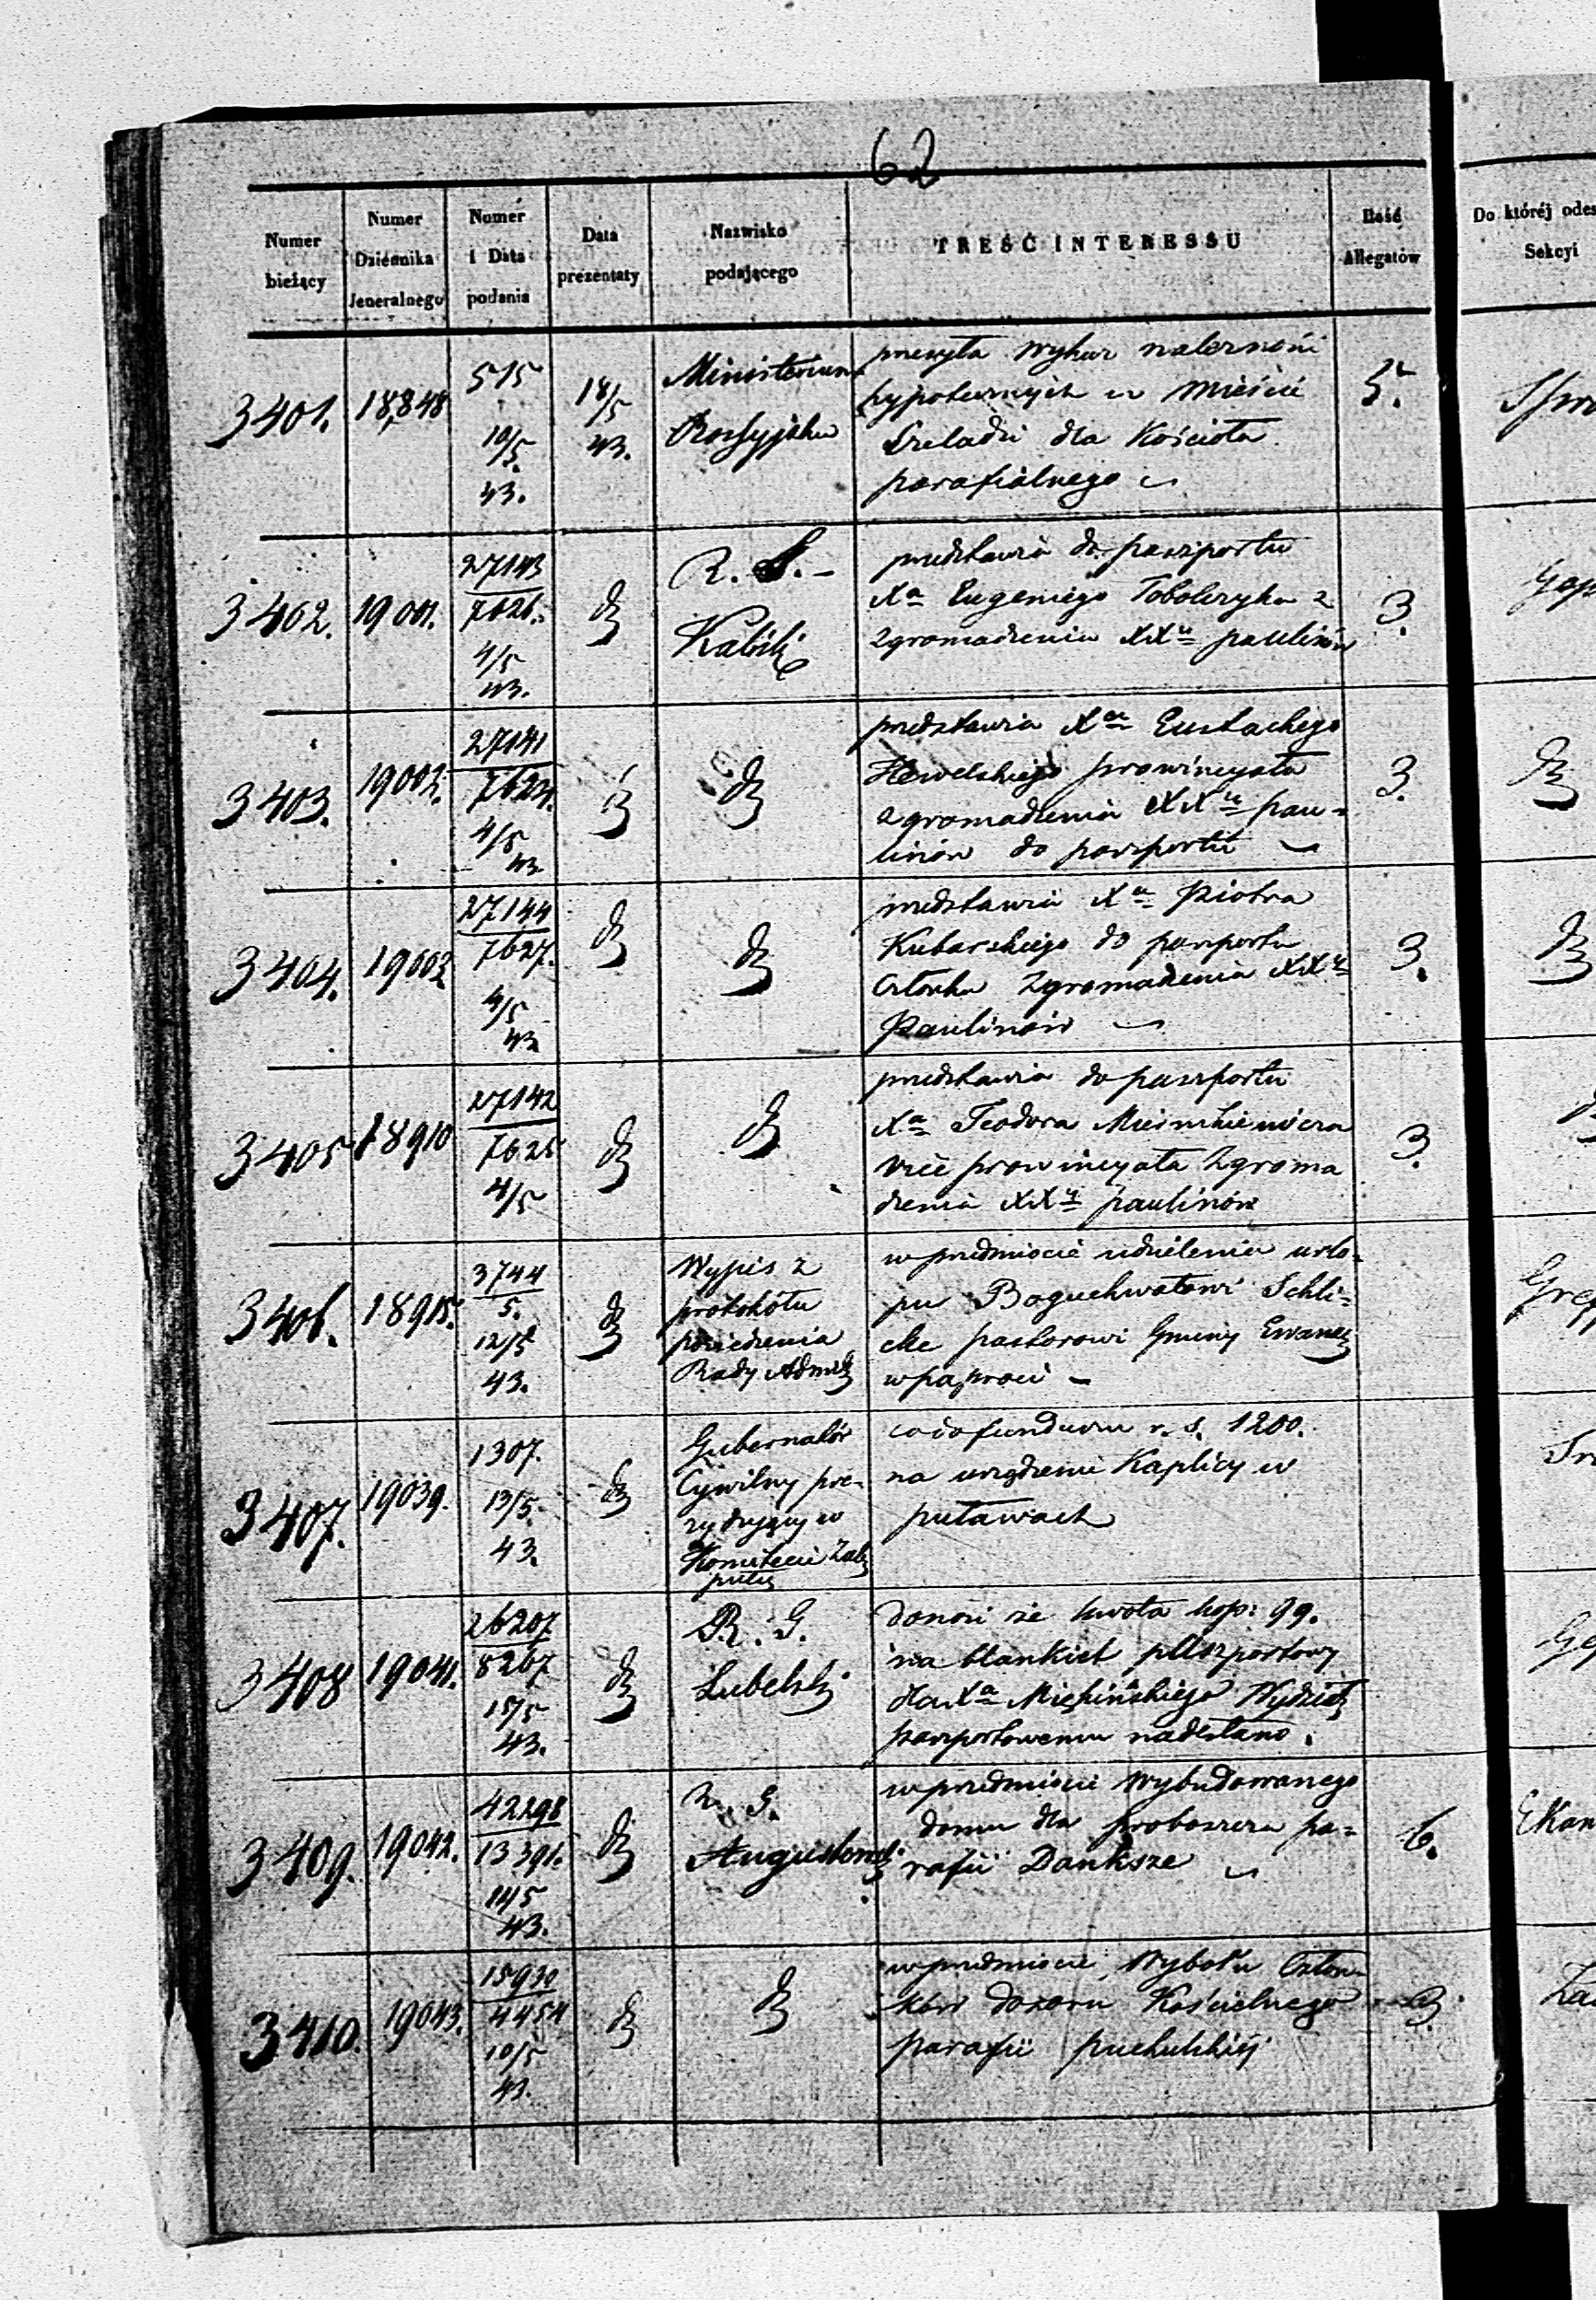 62
Numer bieżący
Numer Dziennika Jeneralnego
Numer i Data podania
Data prezentaty
Nazwisko podającego
TREŚĆ INTERESSU
Ilość Allegatów
Do któréj odes
Sekcyi
3401.
18,848
515
10/5.
43.
18/5
43.
Ministerium
przesyła wykaz należności
hypotecznych w mieście
dla Kościoła
parafialnego
5.
3402.
19001.
27143
7626.
4/5
43.
dº
R. G.
Kaliski
przedstawia do paszportu
Xa Eugeniego Toboleżyka z
zgromadzenia XXw paulinów
3.
3403.
19002.
27141
7624.
4/5
43
dº
dº
przedstawia Xa Eustachego
prowincyała
zgromadzenia XXw pau-
linów do paszportu
3.
dº
3404.
19003
27144
7627.
4/5
43
dº
dº
przedstawia Xa Piotra
Kubarskiego do paszportu
Członka Zgromadzenia XXw
Paulinów
3.
dº
3405
18910
27142
7625
4/5
dº
dº
przedstawia do paszportu
Xa Teodora
vice prowincyała Zgroma
dzenia XXw paulinów
3.
3406.
18915.
3744
5.
12/5
43.
dº
Wypis z
protokółu
posiedzenia
Rady Admin
w przedmiocie udzielenia urlo-
pu Boguchwałowi Schli-
cke pastorowi Gminy Ewang
w paproci
3407.
19039.
1307.
13/5.
43.
dº
Gubernator
Cywilny pre-
zydujący w
Komitecie Zakł
co do funduszu r. s. 1200.
na urządzenie Kaplicy w
puławach
3408
19041.
26207
8267
15/5
43.
dº
R. G.
Lubelski
donosi że kwota kop: 99.
na blankiet paszportowy
dla Xa Wydział
paszportowemu nadesłano.
3409.
19042.
42298
13391.
14/5
43.
dº
R. G.
Augustowski
w przedmiocie wybudowanego
domu dla proboszcza pa-
rafii Danksze
6.
3410.
19043.
15930
4454
10/5
43.
dº
dº
w przedmiocie, wyboru Człon-
ków dozoru Kościelnego
parafii
3.